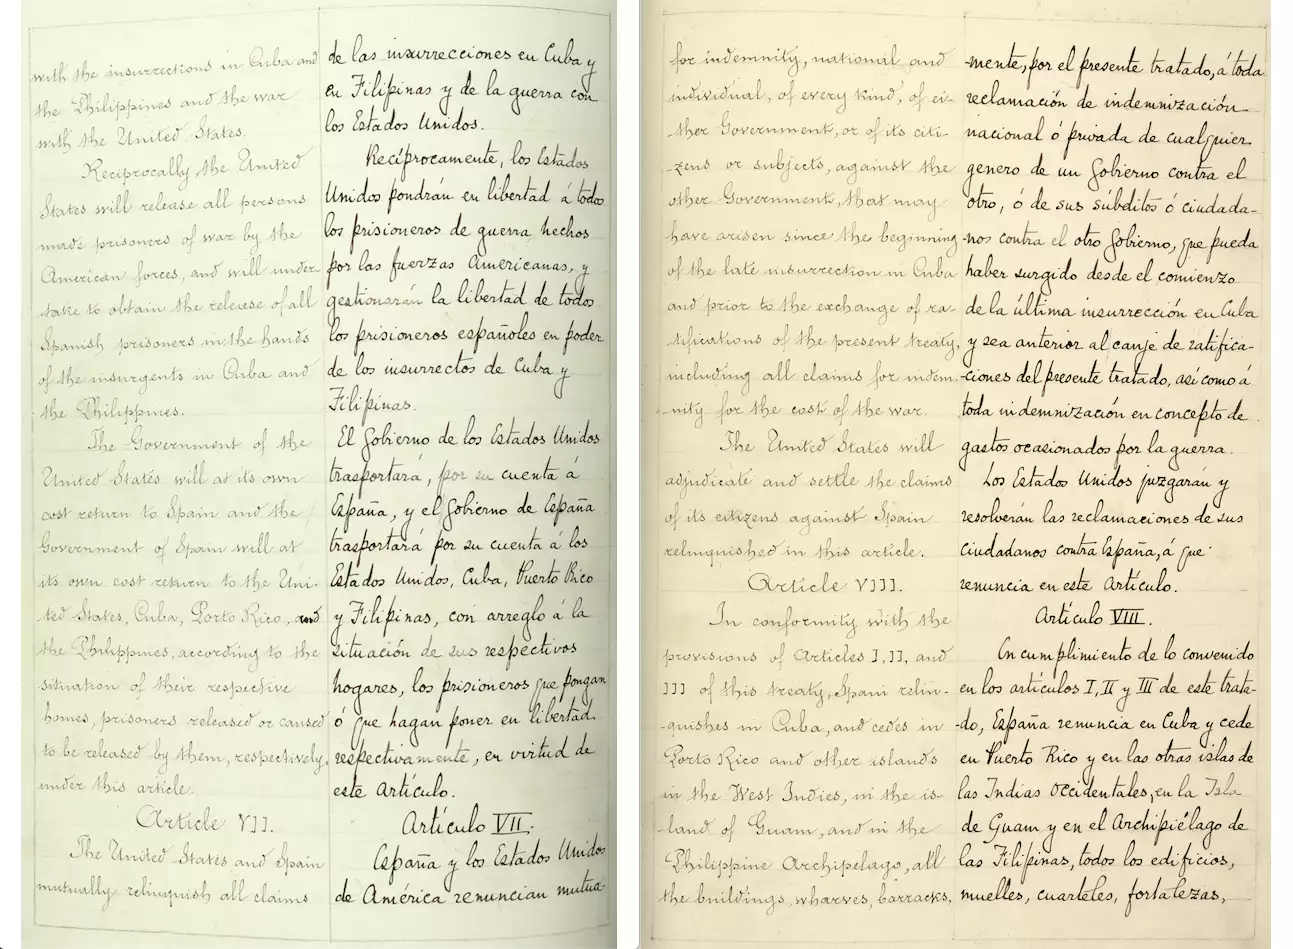 with the insurrections in Cuba and
the Philippines and the war
with the United States.
Reciprocally, the United
States will release all persons
made prisoners of war by the
American forces, and will under-
take to obtain the release of all
Spanish prisoners in the hands
of the insurgents in Cuba and
the Philippines.
The Government of the
United States will at its own
cost return to Spain and the
Government of Spain will at
its own cost return to the Uni-
ted States, Cuba, Porto Rico, and
the Philippines, according to the
situation of their respective
homes, prisoners released or caused
to be released by them, respectively,
under this article.
Article VII.
The United States and Spain
mutually relinquish all claims
de las insurrecciones en Cuba y
en Filipinas y de la guerra con
los Estados Unidos.
Recíprocamente, los Estados
Unidos pondrán en libertad á todos
los prisioneros de guerra hechos
por las fuerzas Americanas, y
gestionarán la libertad de todos
los prisioneros españoles en poder
de los insurrectos de Cuba y
Filipinas.
El Gobierno de los Estados Unidos
trasportará, por su cuenta á
España, y el Gobierno de España
trasportará por su cuenta á los
Estados Unidos, Cuba, Puerto Rico
y Filipinas, con arreglo á la
situación de sus respectivos
hogares, los prisioneros que pongan
ó que hagan poner en libertad
respectivamente, en virtud de
este Artículo.
Artículo VII.
España y los Estados Unidos
de América renuncian mutua-
for indemnity, national and
individual, of every kind, of ei-
ther Government, or of its citi-
zens or subjects, against the
other Government, that may
have arisen since the beginning
of the late insurrection in Cuba
and prior to the exchange of ra-
tifications of the present treaty,
including all claims for indem-
nity for the cost of the war.
The United States will
adjudicate and settle the claims
of its citizens against Spain
relinquished in this article.
Article VIII.
In conformity with the
provisions of Articles I, II, and
III of this treaty, Spain relin-
quishes in Cuba, and cedes in
Porto Rico and other islands
in the West Indies, in the is-
land of Guam, and in the
Philippine Archipelago, all
the buildings, wharves, barracks,
-mente, por el presente tratado, á toda
reclamación de indemnización
nacional ó privada de cualquier
genero de un Gobierno contra el
otro, ó de sus súbditos ó ciudada-
-nos contra el otro Gobierno, que pueda
haber surgido desde el comienzo
de la última insurrección en Cuba
y sea anterior al canje de ratifica-
-ciones del presente tratado, así como á
toda indemnización en concepto de
gastos ocasionados por la guerra.
Los Estados Unidos juzgarán y
resolverán las reclamaciones de sus
ciudadanos contra España, á que
renuncia en este Artículo.
Artículo VIII.
En cumplimiento de lo convenido
en los artículos I, II y III de este trata-
-do, España renuncia en Cuba y cede
en Puerto Rico y en las otras islas de
las Indias Occidentales, en la Isla
de Guam y en el Archipiélago de
las Filipinas, todos los edificios,
muelles, cuarteles, fortalezas,